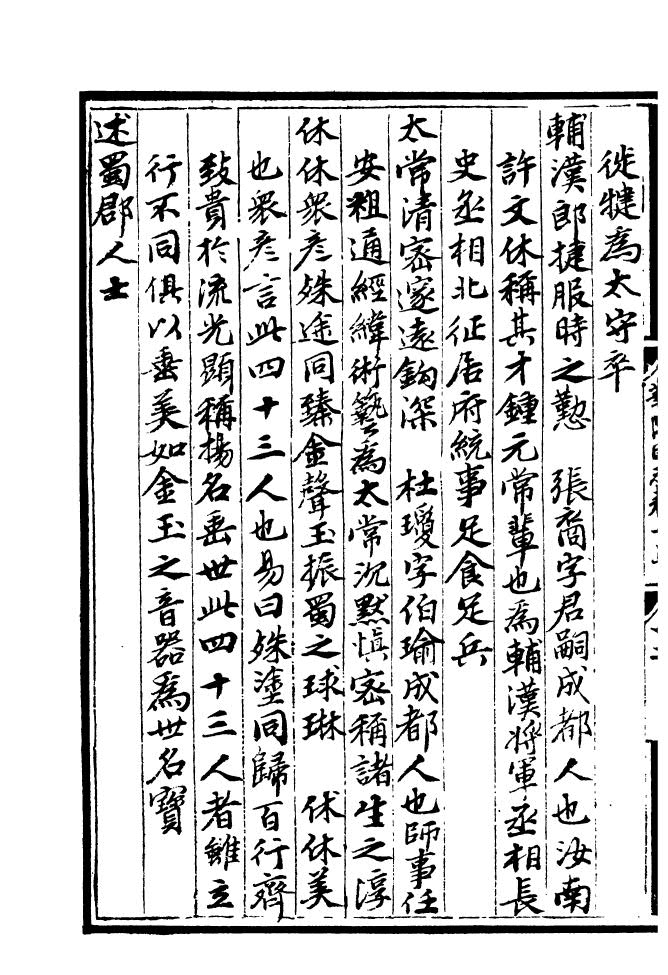 徙犍爲太守卒
輔漢郎捷服時之懃　張裔字君嗣成都人也汝南
許文休稱其才鍾元常輩也爲輔漢將軍丞相長
史丞相北征居府統事足食足兵
太常清密邃遠鈎深　杜瓊字伯瑜成都人也師事任
安粗通經緯術藝爲太常沉默愼密稱諸生之淳
休休衆彦殊途同臻金聲玉振蜀之球琳　休休美
也衆彦言此四十三人也易曰殊塗同歸百行齊
致貴於流光顯稱揚名垂世此四十三人者雖立
行不同俱以垂美如金玉之音器爲世名寶
述蜀郡人士